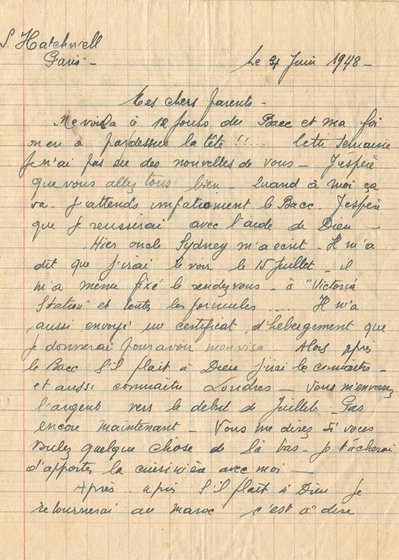 S. Hatchwell
Paris.
Le 24 Juin 1948 -
Mes chers parents -
Me voilà à 12 jours du Bacc et ma foi
j'en ai pardessus la tête !!... Cette semaine
Je n'ai pas eu des nouvelles de vous - J'espère
que vous allez tous bien - Quand à moi ça
va - J'attends impatiemment le Bacc. J'espère
que je reussirai avec l'aide de Dieu -
- Hier oncle Sydney m'a ecrit - Il m'a
dit que j'irai le voir le 15 Juillet - il
m'a même fixé le rendez vous - à "Victoria
Station" et toutes les formules ... Il m'a
aussi envoyé un certificat d'hébergement que
je donnerai pour avoir mon visa. Alors après
le Bacc S'il plait à Dieu j'irai le connaitre -
et aussi connaitre Londres - Vous m'enverrez
l'argent vers le debut de Juillet - Pas
encore maintenant - Vous me direz si vous
voulez quelque chose de là bas - Je tâcherai
d'apporter la cuisinière avec moi -
Après. après S'il plait à Dieu je
retournerai au maroc c'est à dire